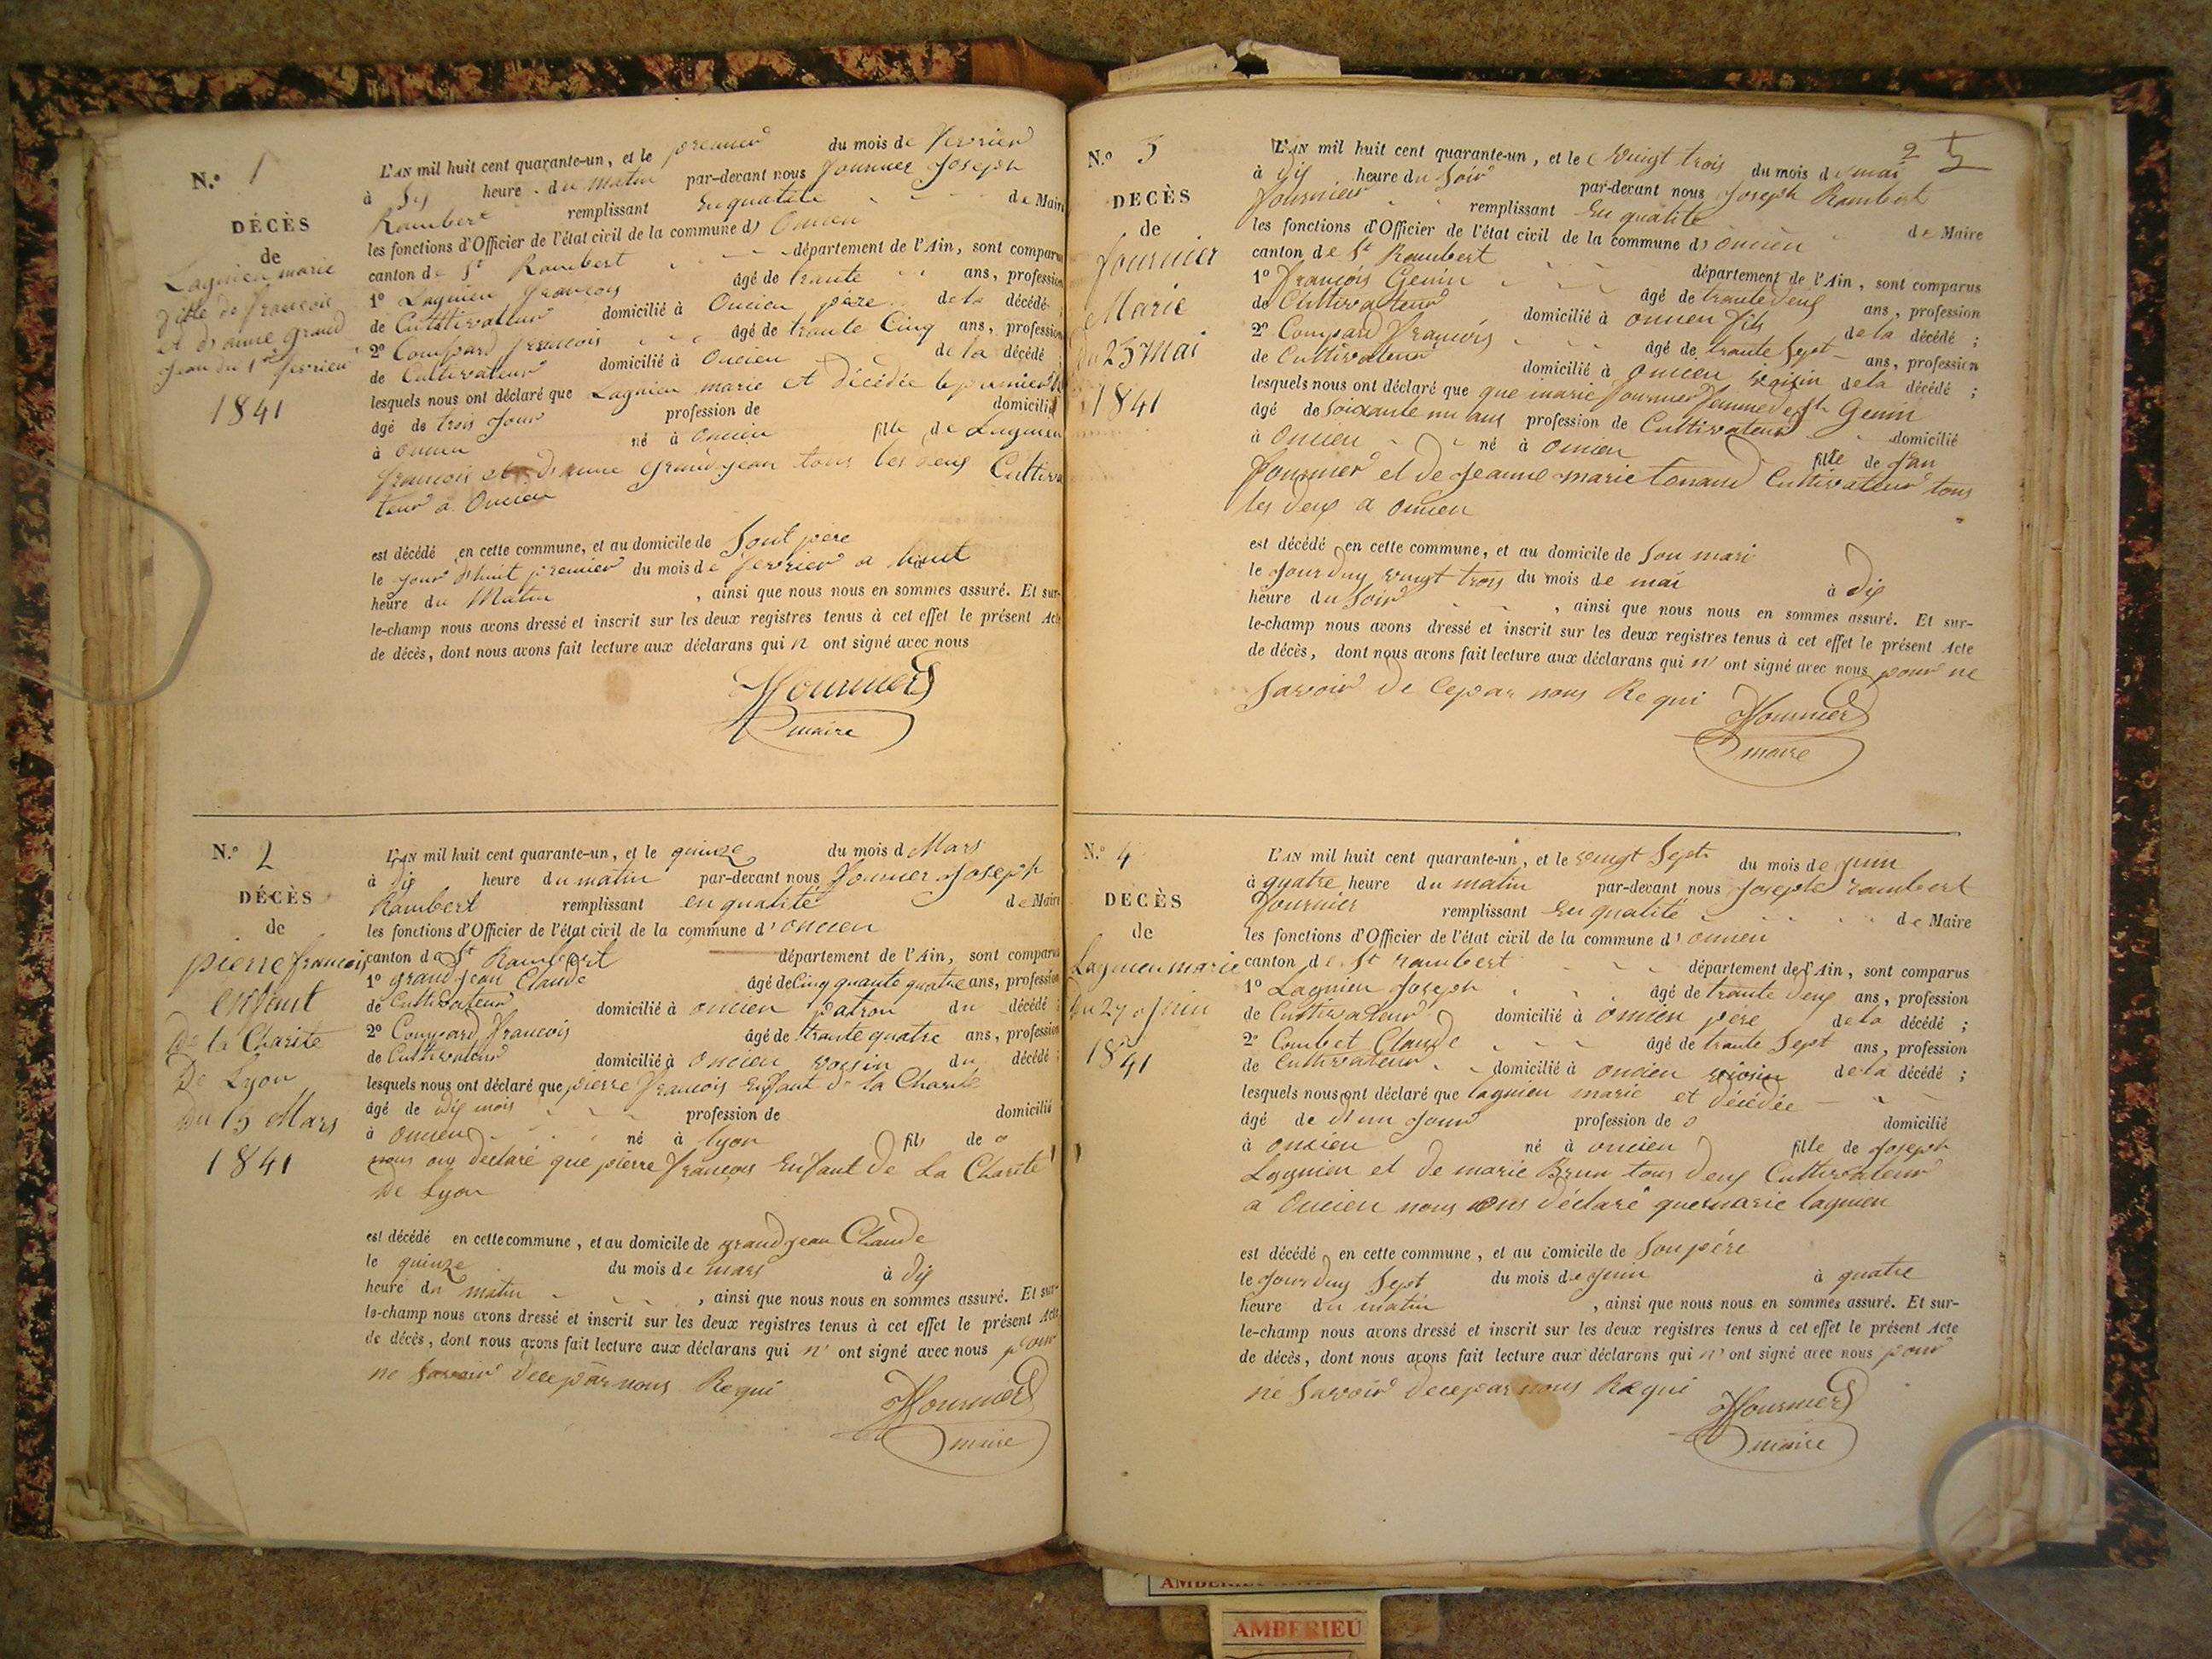 N.º 1
DÉCÈS
de
Lagnieu marie
fille de francois
et d'anne grand
jean du 1er fevrier
1841
L'AN mil huit cent quarante-un, et le premier du mois de fevrier
à dix heure du matin par-devant nous fournier Joseph
Rambert remplissant En qualité de Maire
les fonctions d'Officier de l'état civil de la commune d'oncieu
canton de St Rambert département de l'Ain, sont comparus
1º Lagnieu francois âgé de trante ans, profession
de Cultivateur domicilié à Oncieu père de la décédé ;
2º Compard francois âgé de trante Cinq ans, profession
de Cultivateur domicilié à Oncieu de la décédé ;
lesquels nous ont déclaré que Lagnieu marie et décédée le premier
âgé de trois jour profession de domicilié
à oncieu né à oncieu fille de Lagnieu
francois et d'anne grand jean tous les deux Cultiva
teur a Oncieu
est décédé en cette commune, et au domicile de Sont père
le jour d'huit premier du mois de fevrier a huit
heure du Matin , ainsi que nous nous en sommes assuré. Et sur-
le-champ nous avons dressé et inscrit sur les deux registres tenus à cet effet le présent Acte
de décès, dont nous avons fait lecture aux déclarans qui n ont signé avec nous
JFournier
maire
N.º 2
DÉCÈS
de
pierre francois
enfant
De la Charite
De Lyon
du 15 Mars
1841
L'AN mil huit cent quarante-un, et le quinze du mois d Mars
à dix heure du matin par-devant nous fournier Joseph
Rambert remplissant en qualité de Maire
les fonctions d'Officier de l'état civil de la commune d'oncieu
canton de St Rambert département de l'Ain, sont comparus
1º grand jean Claude âgé de Cinquante quatre ans, profession
de Cultivateur domicilié à oncieu patron du décédé ;
2º Compard francois âgé de trante quatre ans, profession
de Cultivateur domicilié à oncieu voisin du décédé ;
lesquels nous ont déclaré que pierre francois Enfant de la Charité
âgé de dix mois profession de domicilié
à oncieu né à lyon fils de
nous ons declaré que pierre françois Enfant de La Charite
De Lyon
est décédé en cette commune, et au domicile de grand jean Claude
le quinze du mois de mars à dix
heure du matin , ainsi que nous nous en sommes assuré. Et sur-
le-champ nous avons dressé et inscrit sur les deux registres tenus à cet effet le présent Acte
de décès, dont nous avons fait lecture aux déclarans qui n' ont signé avec nous pour
ne savoir dece par nous Requi
JFournier
maire
2
N.º 3
DÉCÈS
de
fournier
Marie
du 23 mai
1841
L'AN mil huit cent quarante-un, et le vingt trois du mois de mai
à dix heure du Soir par-devant nous Joseph Rambert
fournier remplissant En qualité de Maire
les fonctions d'Officier de l'état civil de la commune d'oncieu
canton de St Rambert département de l'Ain, sont comparus
1º françois Genin âgé de trante deux ans, profession
de Cultivateur domicilié à oncieu fils de la décédé ;
2º Compard françois âgé de trante Sept ans, profession
de Cultivateur domicilié à oncieu voisin de la décédé ;
lesquels nous ont déclaré que que marie fournier femme de Genin
âgé de Soixante un ans profession de Cultivateur domicilié
à Oncieu né à oncieu fille de Jan
fournier et de Jeanne marie tenand Cultivateur tous
les deux a oncieu
est décédé en cette commune, et au domicile de Son mari
le jourduy vingt trois du mois de mai à dix
heure du Soir , ainsi que nous nous en sommes assuré. Et sur-
le-champ nous avons dressé et inscrit sur les deux registres tenus à cet effet le présent Acte
de décès, dont nous avons fait lecture aux déclarans qui n' ont signé avec nous pour ne
Savoir de ce par nous Requi
JFournier
maire
N.º 4
DÉCÈS
de
Lagnieu marie
du 27 juin
1841
L'AN mil huit cent quarante-un, et le vingt Sept du mois de juin
à quatre heure du matin par-devant nous Joseph rambert
fournier remplissant En qualité de Maire
les fonctions d'Officier de l'état civil de la commune d'oncieu
canton de St rambert département de l'Ain, sont comparus
1º Lagnieu Joseph âgé de trante deux ans, profession
de Cultivateur domicilié à oncieu père de la décédé ;
2º Combet Claude âgé de trante Sept ans, profession
de Cultivateur domicilié à oncieu voisin de la décédé ;
lesquels nous ont déclaré que lagnieu marie et décédée
âgé de d'un jour profession de domicilié
à oncieu né à oncieu fille de Joseph
Lagnieu et de marie Brun tous deux Cultivateur
a Oncieu nous ons déclaré que marie lagnieu
est décédé en cette commune, et au domicile de Son père
le jourduy Sept du mois de juin à quatre
heure du matin , ainsi que nous nous en sommes assuré. Et sur-
le-champ nous avons dressé et inscrit sur les deux registres tenus à cet effet le présent Acte
de décès, dont nous avons fait lecture aux déclarans qui n' ont signé avec nous pour
ne Savoir dece par nous Requi
JFournier
maire
AMBERIEU
AMBERIEU